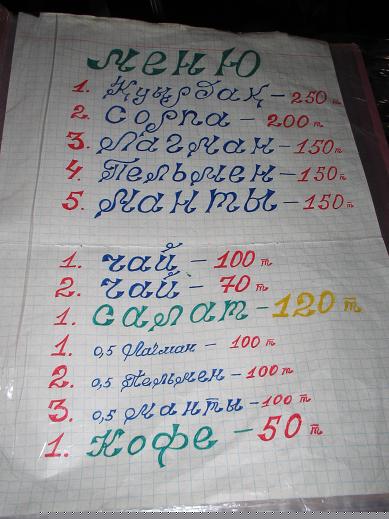 меню
1. Куырдақ - 250 т
2. Сорпа - 200 т
3. Лагман - 150 т
4. Пельмен - 150 т
5. Манты - 150 т
1. чай - 100 т
2. чай - 70 т
1. салат - 120 т
1. 0,5 Лагман - 100 т
2. 0,5 Пельмен - 100 т
3. 0,5 манты - 100 т
1. Кофе - 50 т